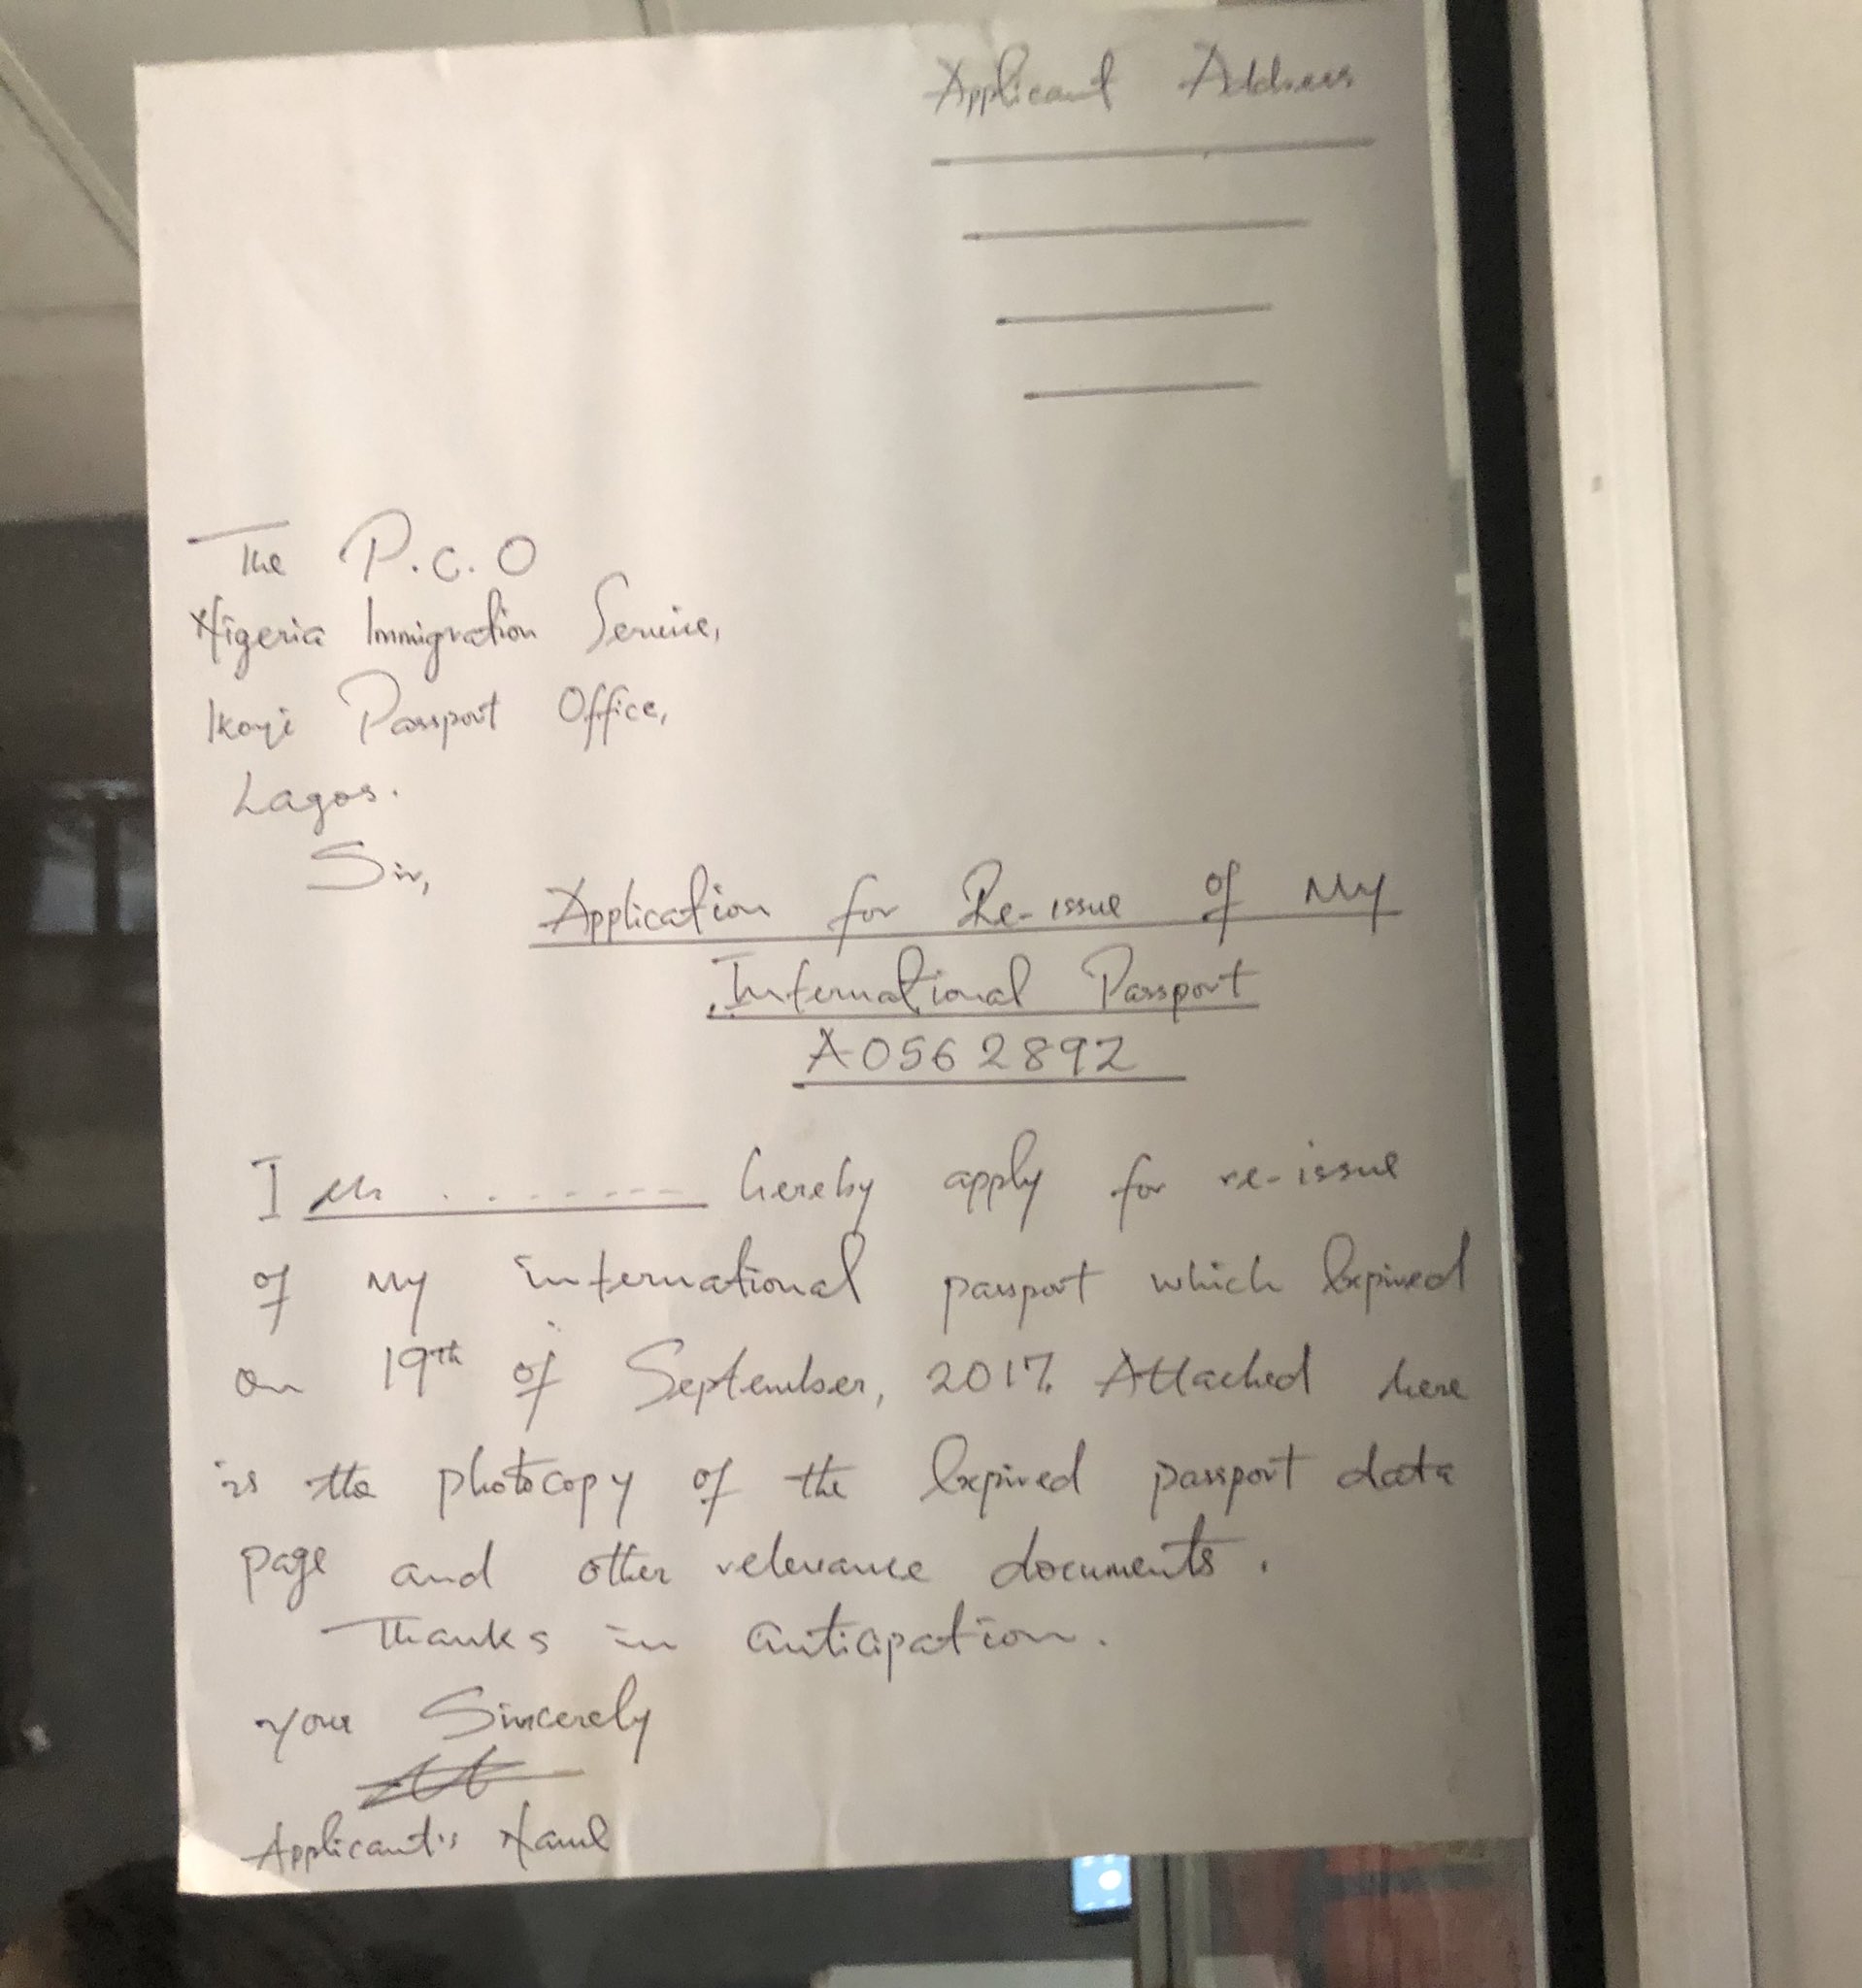 Applicant Address
The P.C.O
Nigeria Immigration Service,
Ikoyi Passport Office,
Lagos.
Sir,
Application for Re-issue of My
International Passport
A0562892
I Mr ......... hereby apply for re-issue
of My international passport which Expired
on 19th of September, 2017. Attached here
is the photocopy of the Expired passport data
page and other relevance documents.
Thanks in anticipation.
Your Sincerely
Applicant's Name